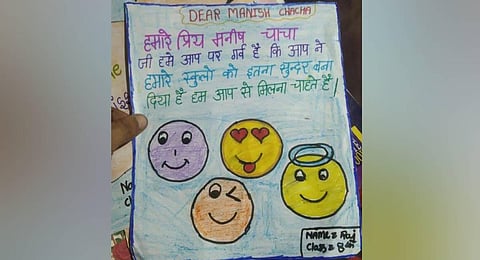 DEAR MANISH CHACHA
हमारे प्रिय मनीष चाचा
जी हमे आप पर गर्व है कि आप ने
हमारे स्कुलो को इतना सुन्दर बना
दिया है हम आप से मिलना चाहते है।
NAME = Raj
Class = 8